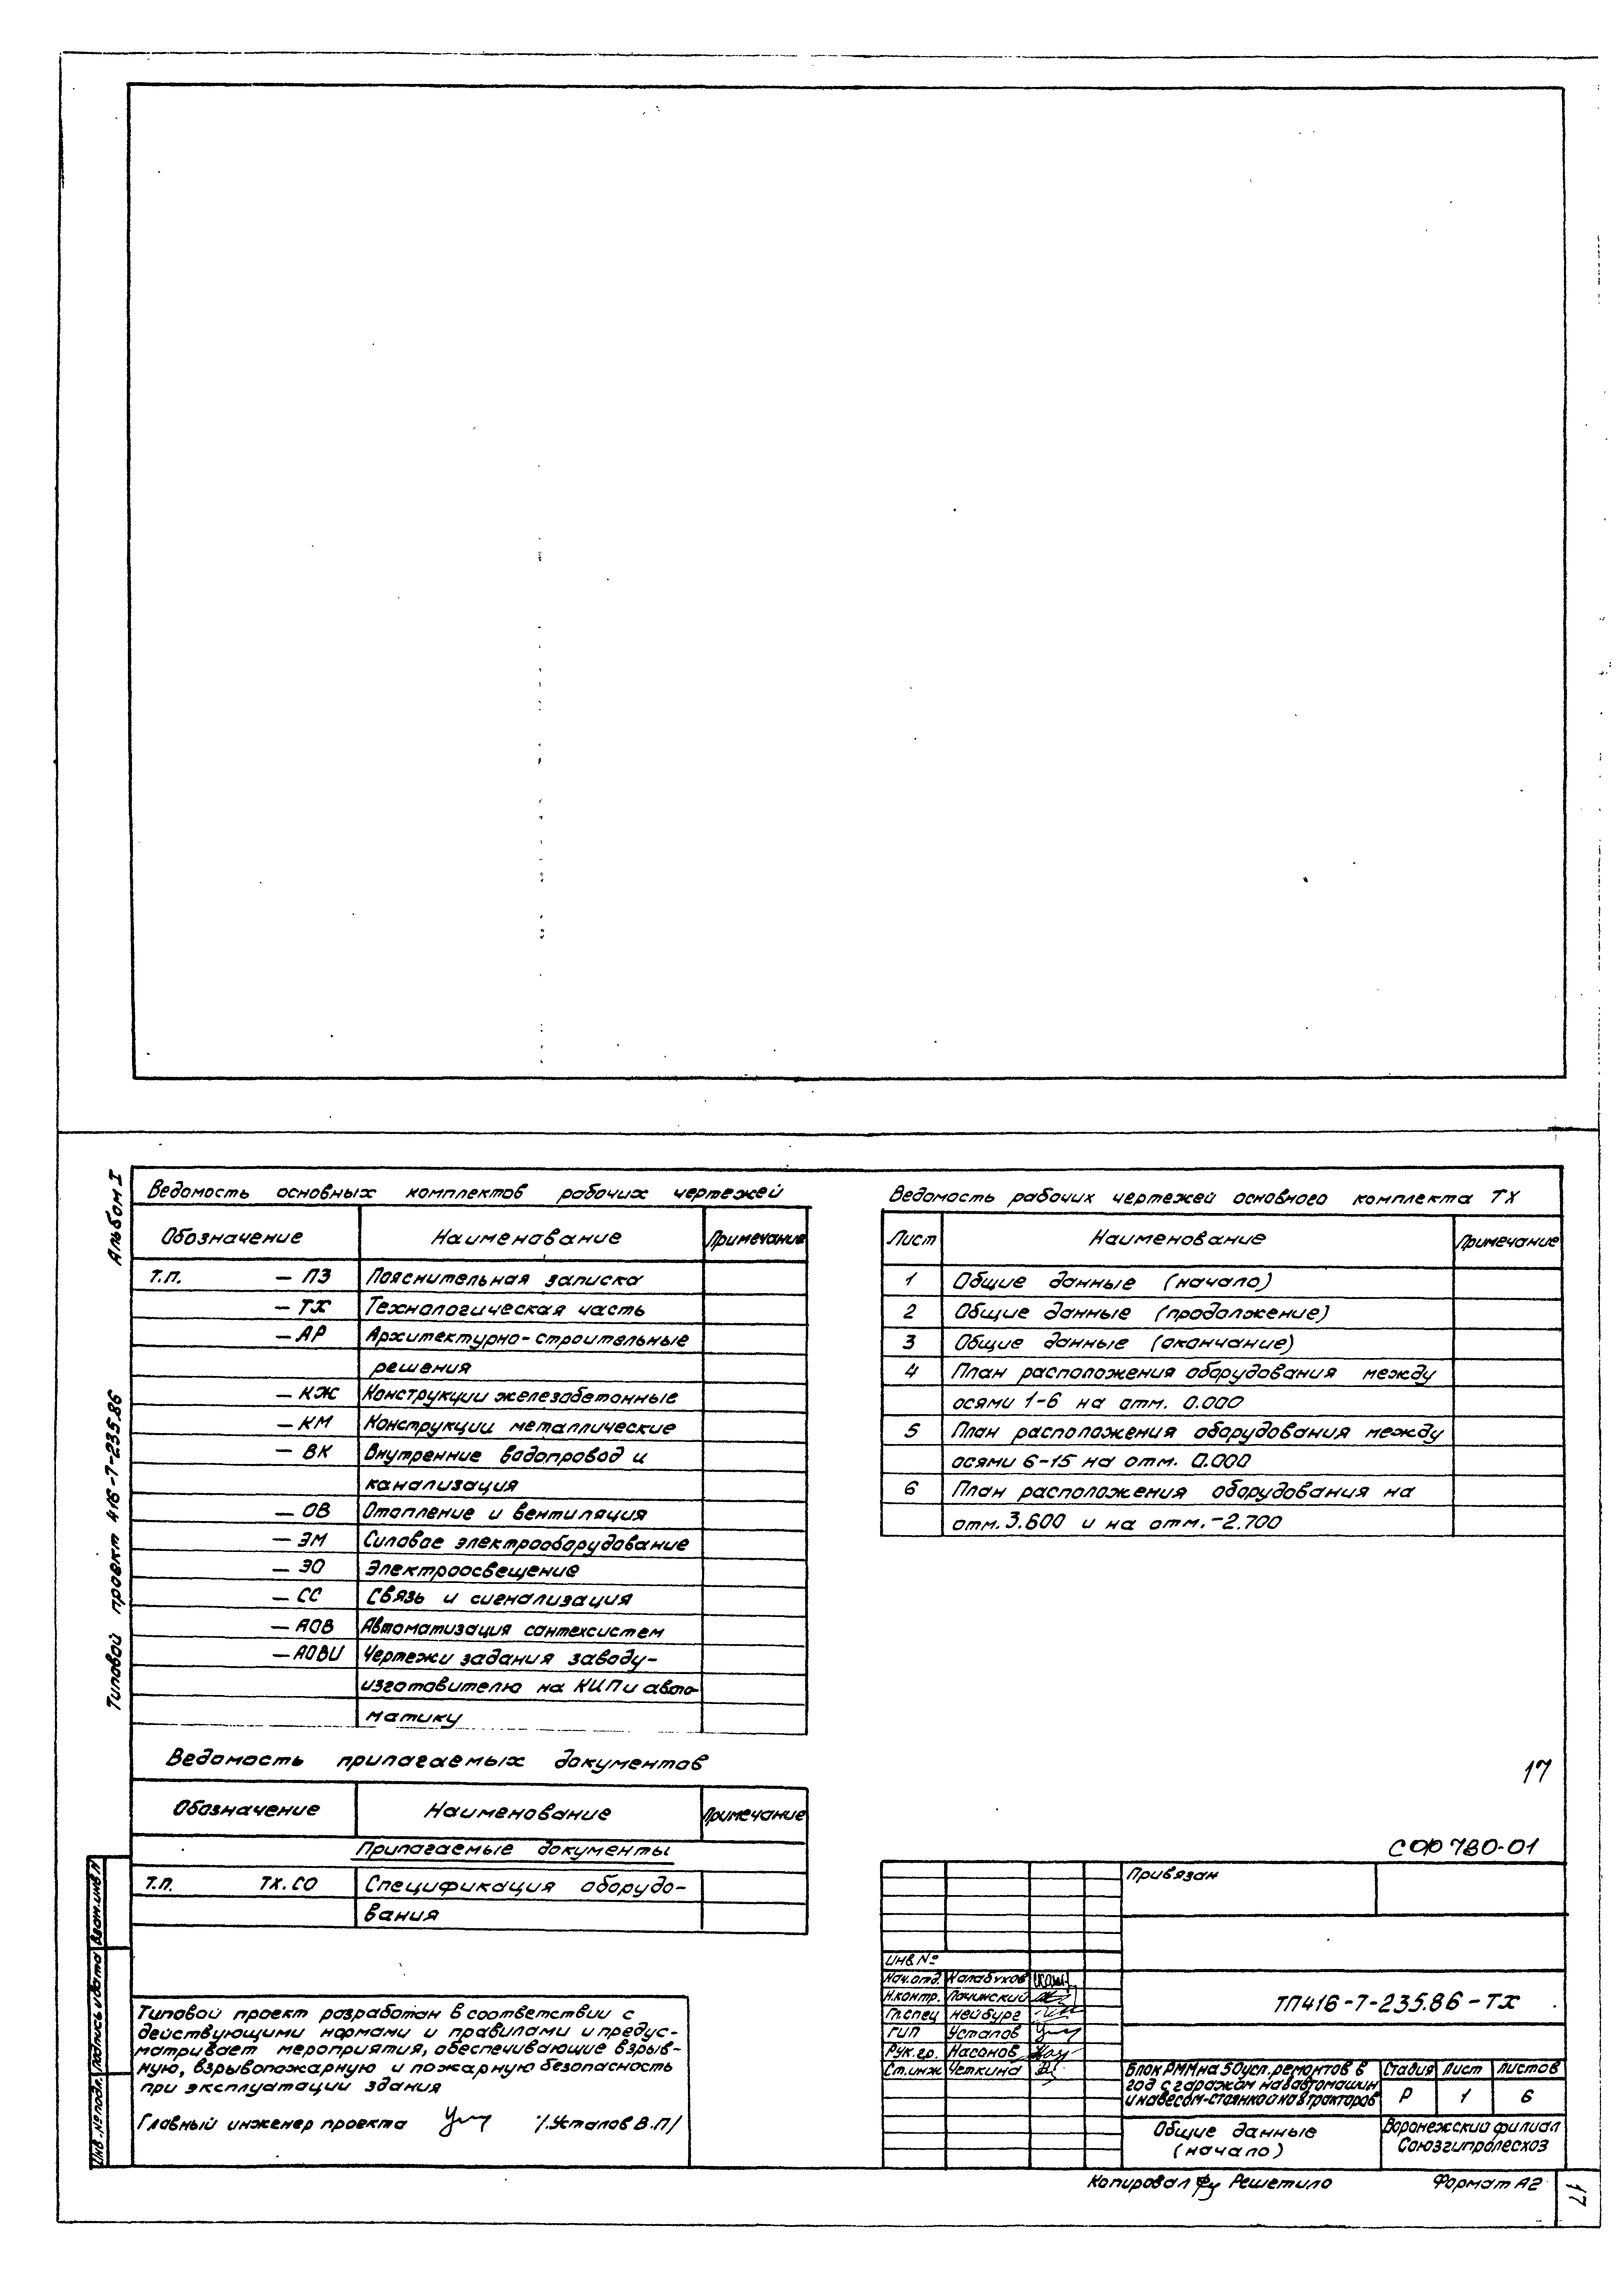 Альбом I
Типовой проект 416-7-235.86
Ведомость основных комплектов рабочих чертежей
Обозначение Наименование Примечание
Т.П. — ПЗ Пояснительная записка
— ТХ Технологическая часть
— АР Архитектурно-строительные
решения
— КЖ Конструкции железобетонные
— КМ Конструкции металлические
— ВК Внутренние водопровод и
канализация
— ОВ Отопление и вентиляция
— ЭМ Силовое электрооборудование
— ЭО Электроосвещение
— СС Связь и сигнализация
— АОВ Автоматизация сантехсистем
— АОВИ Чертежи задания заводу-
изготовителю на КИП и авто-
матику
Ведомость прилагаемых документов
Обозначение Наименование Примечание
Прилагаемые документы
Т.П. ТХ.СО Спецификация оборудо-
вания
Типовой проект разработан в соответствии с
действующими нормами и правилами и предус-
матривает мероприятия, обеспечивающие взрыв-
ную, взрывопожарную и пожарную безопасность
при эксплуатации здания
Главный инженер проекта /.Усталов В.П/
Инв.№подл. Подпись и дата Взам.инв.N
Ведомость рабочих чертежей основного комплекта ТХ
Лист Наименование Примечание
1 Общие данные (начало)
2 Общие данные (продолжение)
3 Общие данные (окончание)
4 План расположения оборудования между
осями 1-6 на отм. 0.000
5 План расположения оборудования между
осями 6-15 на отм. 0.000
6 План расположения оборудования на
отм. 3.600 и на отм. -2.700
17
СФ 780-01
Привязан
Инв №
Нач.отд. Калабухов
Н.контр. Лочинский
Гл.спец Нейбург
ГИП Усталов
Рук.гр. Насонов
Ст.инж Четкина
ТП416-7-235.86-ТХ
Блок РММ на 50 усл. ремонтов в
год с гаражом на 8 автомашин
и навесом-стоянкой на 8 тракторов
Стадия Лист Листов
Р 1 6
Общие данные
(начало)
Воронежский филиал
Союзгипролесхоз
Копировал Решетило Формат А2
17